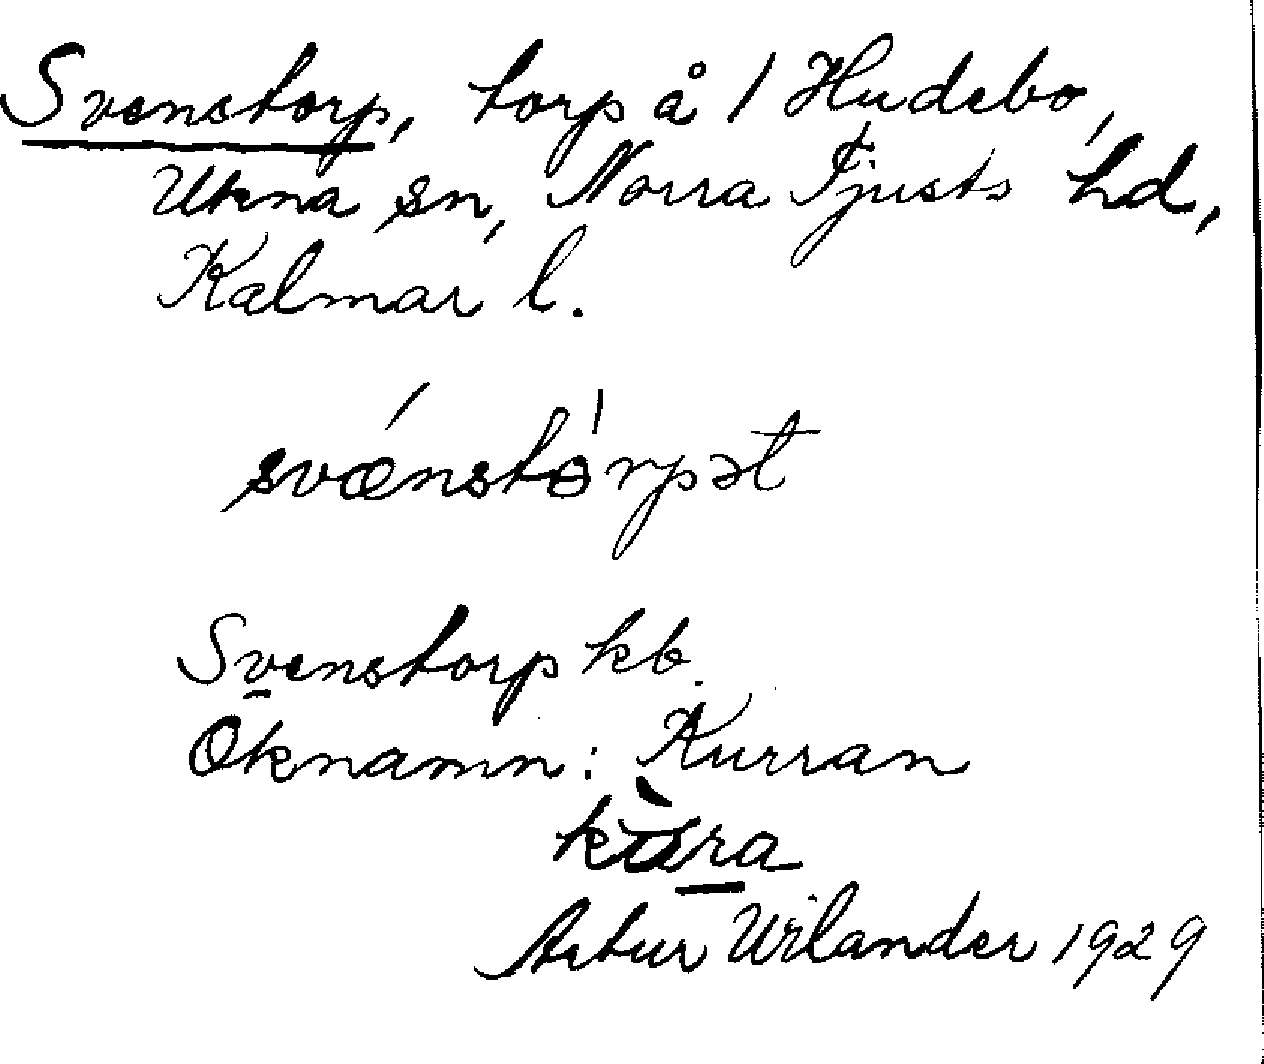 Svenstorp, torp å 1 Hudebo,
Ukna sn, Norra Tjusts hd,
Kalmar l.
svǽnstɵ́rpət
Svenstorp kb.
Öknamn: Kurran
Artur Wilander 1929